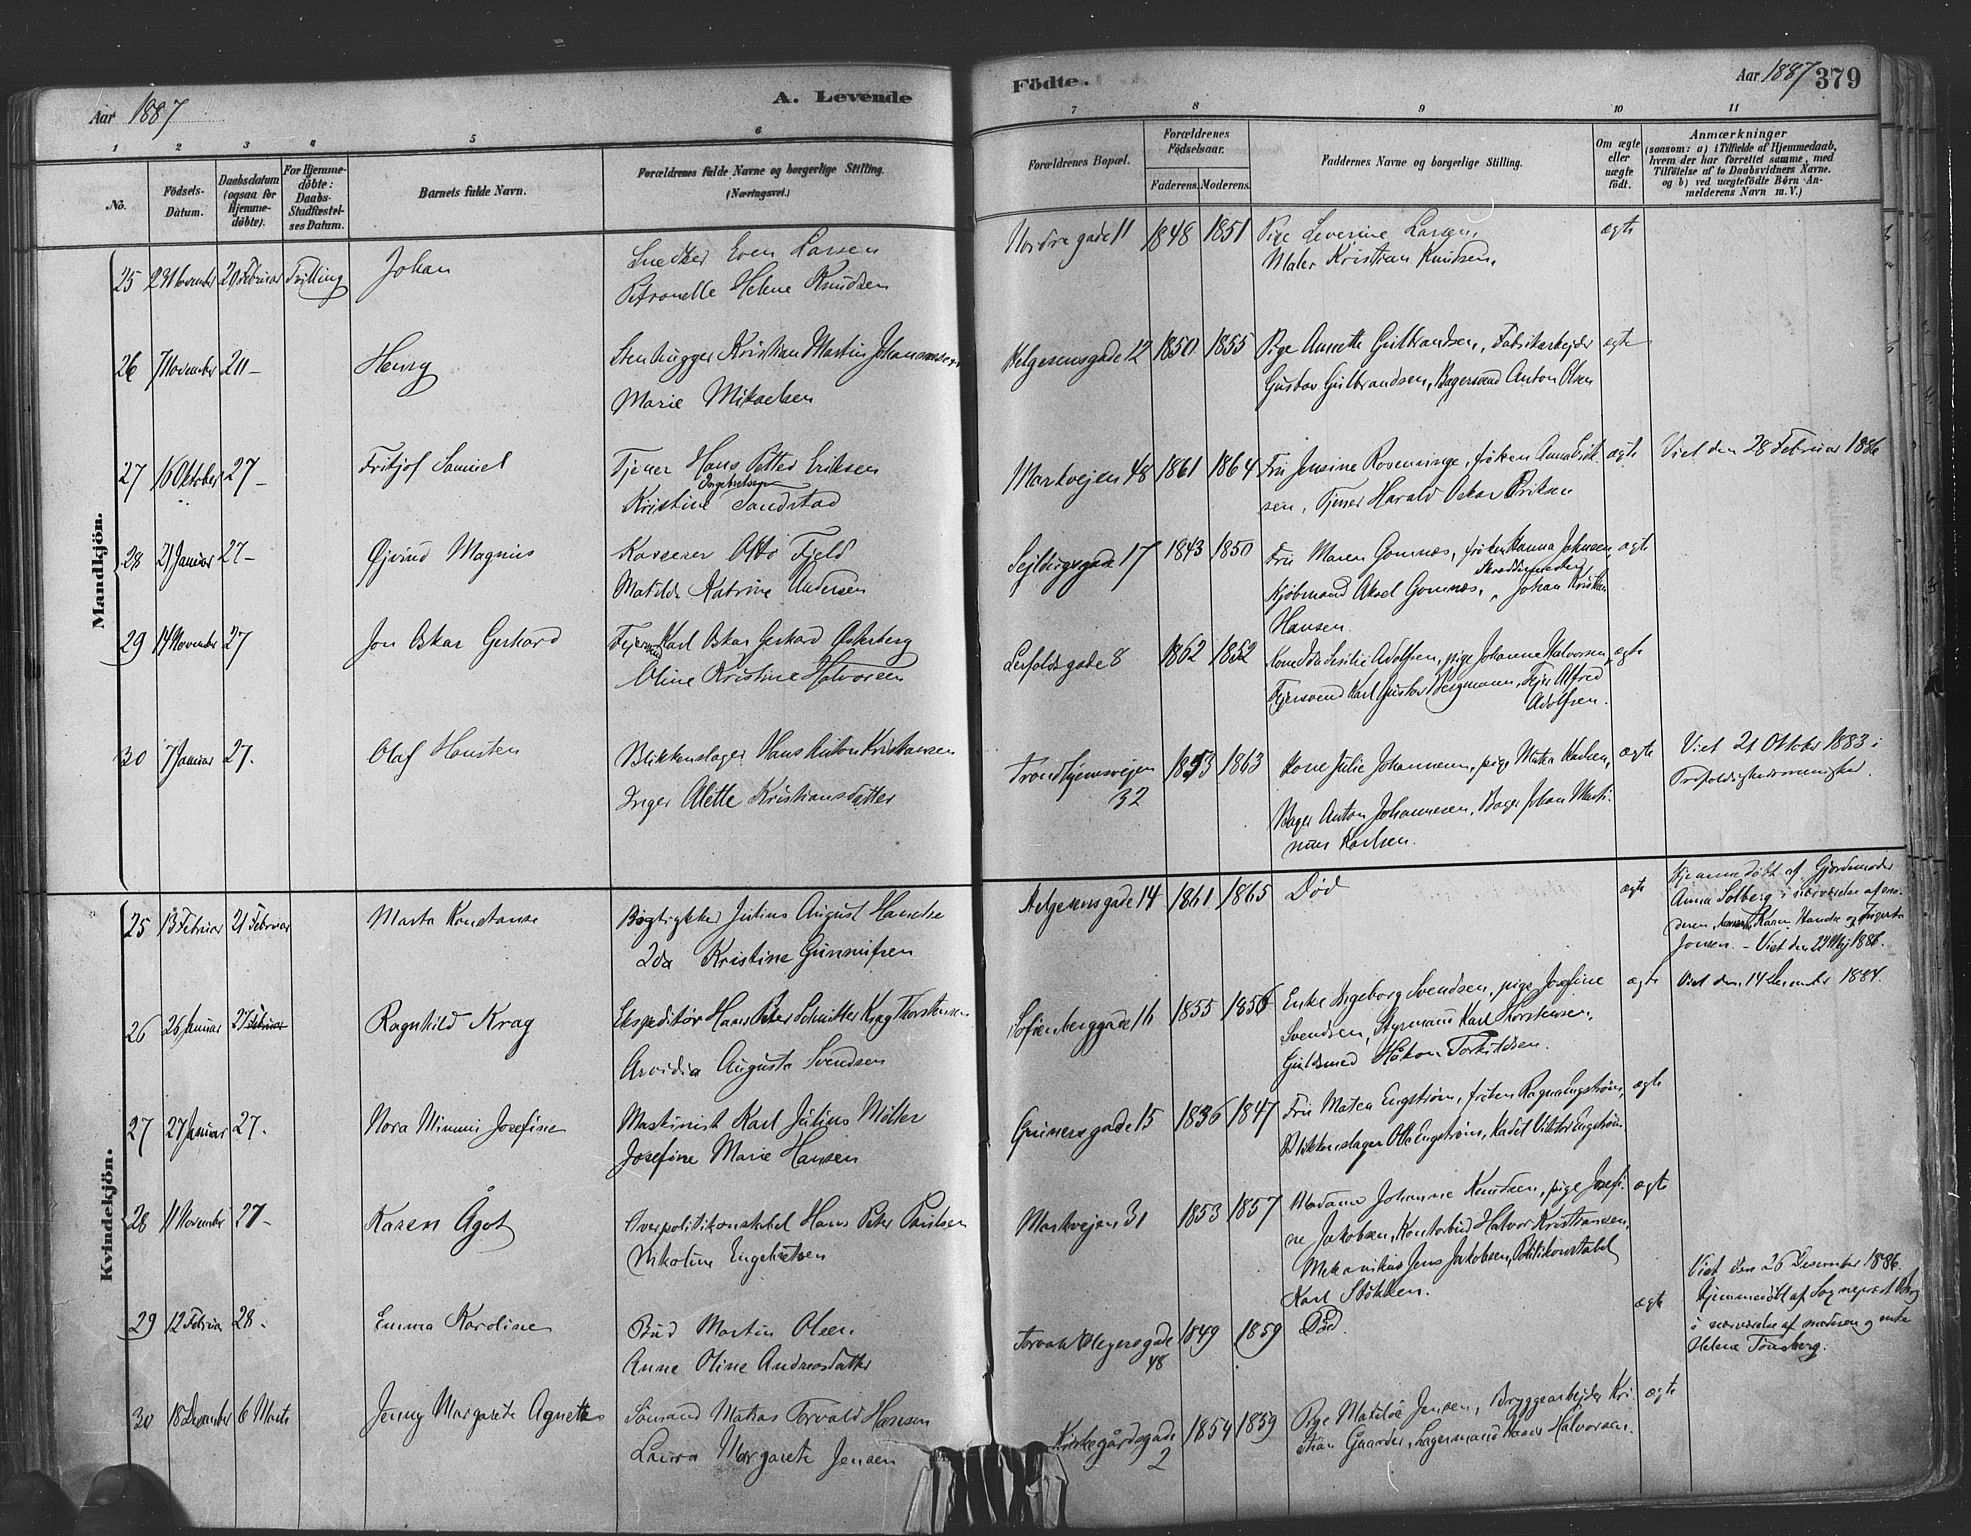 Aar 1887
A. Levende
Födte.
Aar 1887 379
1 2 3 4 5 6 7 8 9 10 11
No.
Födsels-
Datum.
Daabsdatum
(ogsaa for
Hjemme-
döbte).
For Hjemme-
döbte:
Daabs-
Stadfæstel-
ses Datum.
Barnets fulde Navn.
Forældrenes fulde Navne og borgerlige Stilling.
(Næringsvei.)
Forældrenes Bopæl.
Forældrenes
Födselsaar.
Faderens. Moderens.
Faddernes Navne og borgerlige Stilling.
Om ægte
eller
uægte
födt.
Anmærkninger
(saasom: a) i Tilfælde af Hjemmedaab,
hvem der har forrettet samme, med
Tilföielse af to Daabsvidners Navne.
og b) ved uægtefödte Börn An-
melderens Navn m. V.)
Mandkjön.
25 23 November 20 Februar Tvilling Johan
Snedker Even Larsen
Petronelle Helene Knudsen
Nordregade 11 1848 1851
Pige Leverine Larsen,
Maler Kristian Knudsen.
ægte
26 7 November 20 – Henry
Stenhugger Kristian Martin Johannesen
Marie Mikaelsen
Helgesensgade 12 1850 1855
Pige Annette Gulbrandsen, Fabrikarbejder
Gustav Gulbrandsen, Bagersvend Anton Olsen
ægte
27 16 Oktober 27 – Fritjof Samuel
Tjener Hans Petter Eriksen
Ingebretsen
Kristine Sandstad
Markvejen 48 1861 1864
Fru Jensine Rovensinge, frøken Anna Erik-
sen, Tjener Harald Oskar Eriksen
ægte
Viet den 28 Februar 1886
28 21 Januar 27 – Øjvind Magnus
Kasserer Otto Fjeld
Matilde Katrine Andersen
Sejldugsgade 17 1843 1850
Fru Maren Gomnæs, frøken Hanna Johnsen,
Kjöbmand Aksel Gomnæs, Johan Kristian
Hansen.
ægte
29 14 November 27 Jon Oskar Gerhard
Karl Oskar Gerhard Österberg
Oline Kristine Halvorsen
8 1862 1852
Kone Ida Sesilie Adolfsen, pige Johanne Halvorsen,
Karl Gustav Bergmann, Alfred
Adolfsen.
ægte
30 7 Januar 27. Olaf Hansten
Blikkenslager Hans Anton Kristiansen
Inger Alette Kristiansdatter
Trondhjemsvejen
32
1853 1863
Kone Julie Johannesen, pige Karlsen,
Bager Anton Johannesen, Bager Johan Marti-
nius Karlsen.
ægte
Viet 21 Oktober 1883 i
Trefoldighedsmenighed.
Kvindekjön.
25 13 Februar 21 Februar Marta Konstanse
Bogtrykker Julius August Handse
Ida Kristine Gunnufsen
Helgesensgade 14 1861 1865
Död
ægte
Hjemmedöbt af Gjordemoder
Anna Solberg i nærværelse af mo-
deren, Karen Handse og
Jonsen. – Viet den 22 Maj 1886.
26 26 Januar 27 Februar Ragnhild Krag
Ekspeditör Hans Peter Schnitler Krag Thorstensen
Arvidia Augusta Svendsen
Sofienberggade 16 1855 1856
Enke Ingeborg Svendsen, pige Josefine
Svendsen, Styrmand Karl Thorstensen,
Guldsmed Håkon Torkildsen.
ægte
Viet den 14 Desember 1884.
27 27 Januar 27. Nora Mimmi Josefine
Maskinist Karl Julius Möller
Josefine Marie Hansen
Grünersgade 15 1836 1847
Fru Matea Engström, fröken Ragna Engström,
Blikkenslager Otto Engström, Kadet Viktor Engström
ægte
28 11 November 27 – Karen Ågot
Overpolitikonstabel Hans Peter Paulsen
Nikoline Engebretsen
Markvejen 31 1853 1857
Madame Johanne Knudsen, pige Josefi-
ne Jakobsen, Kontorbud Halvor Kristiansen,
Mekanikus Jens Jakobsen, Politikonstabel
Karl Stokken.
ægte
29 12 Februar 28. Emma Karoline
Bud Martin Olsen
Anne Oline Andreasdatter
Torvald Meyersgade
48
1849 1859
Död.
ægte
Viet den 26 Desember 1886.
Hjemmedöbt af Sognepræst
i nærværelse af moderen og enke
Helene Tönsberg.
30 18 Desember 6 Marts Jenny Margarete Agnette
Sömand Matias Torvald Hansen
Laura Margarete Jensen
Kirkegårdsgade
2
1854 1859
Pige Matilde Jensen, Bryggearbejder Kri-
stian Gaarder, Lagermand Hans Halvorsen.
ægte